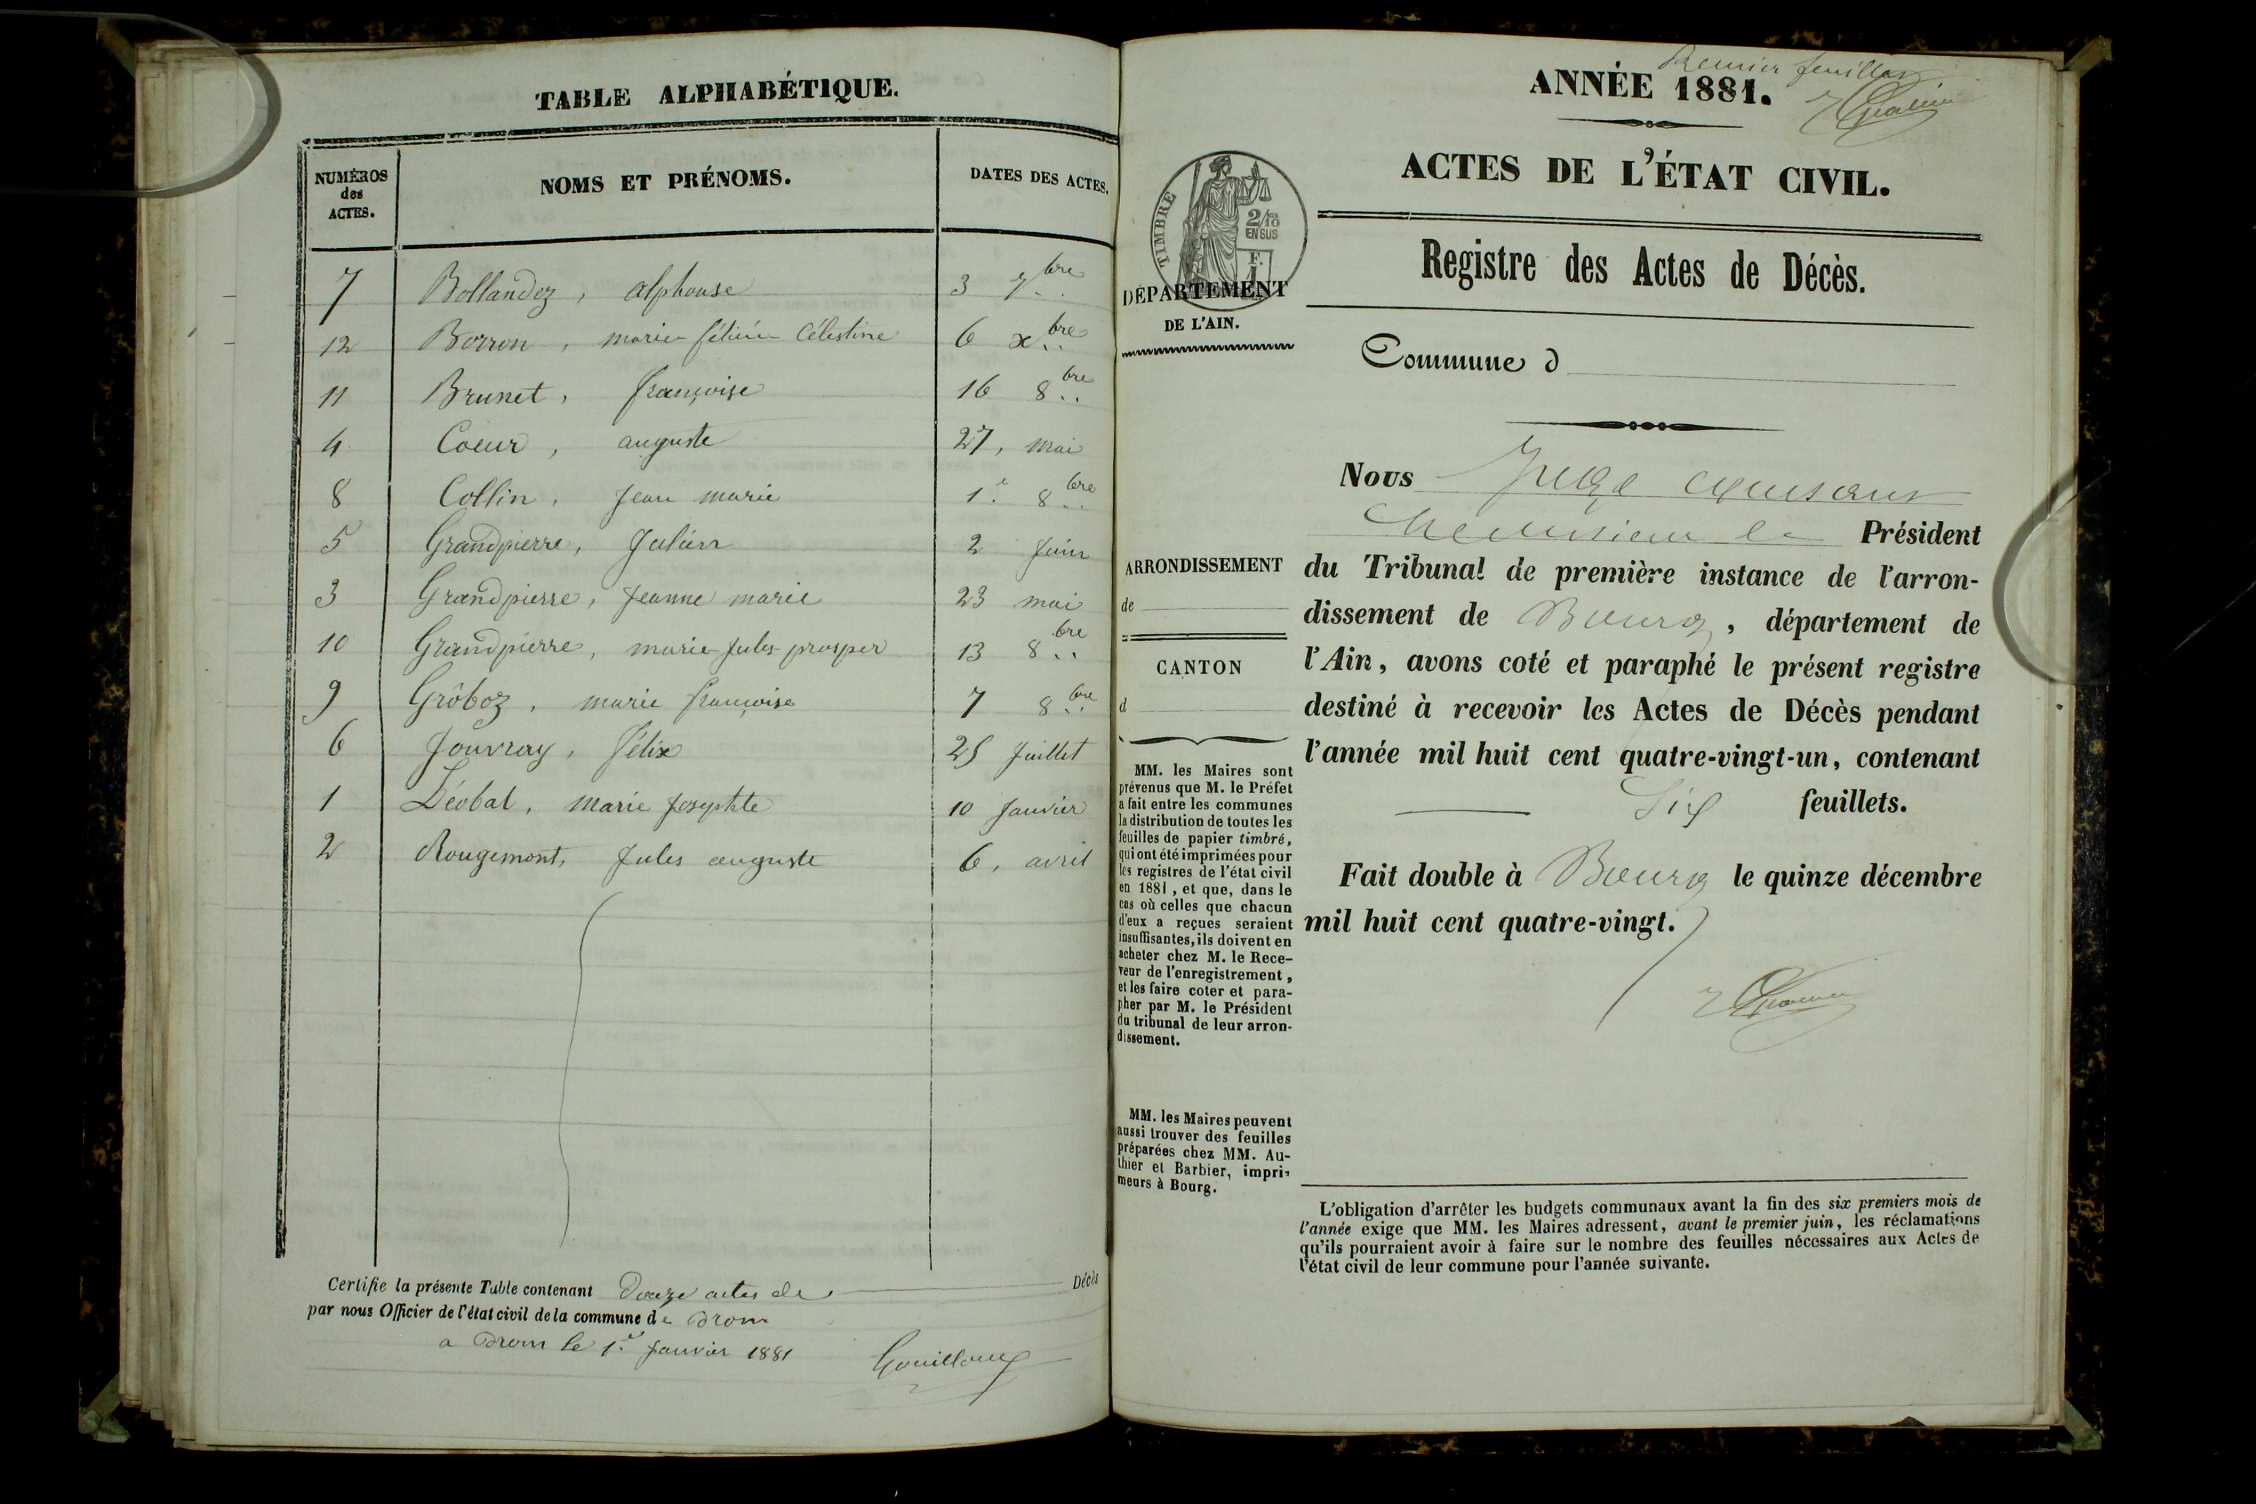 TABLE ALPHABÉTIQUE.
NUMÉROS des ACTES. NOMS ET PRÉNOMS. DATES DES ACTES.
7 Bollandoz, alphonse 3 7bre
12 Borron, marie célestine 6 xbre
11 Brunet, françoise 16 8bre
4 Coeur, auguste 27, mai
8 Collin, jean marie 1er 8bre
5 Grandpierre, Julien 2 juin
3 Grandpierre, Jeanne marie 23 mai
10 Grandpierre, marie jules prosper 13 8bre
9 Grôboz, marie françoise 7 8bre
6 Jouvray, félix 25 juillet
1 Léobal, marie josephte 10 janvier
2 Rougemont, jules auguste 6, avril
Certifie la présente Table contenant Douze actes de Décès
par nous Officier de l'état civil de la commune de Drom
a Drom le 1er janvier 1881 Gouilloux
Premier feuillet
ANNÉE 1881.
ACTES DE L'ÉTAT CIVIL.
TIMBRE
2/10 EN SUS
F.
1
Registre des Actes de Décès.
DÉPARTEMENT
DE L'AIN.
Commune d
ARRONDISSEMENT
de
CANTON
d
MM. les Maires sont
prévenus que M. le Préfet
a fait entre les communes
la distribution de toutes les
feuilles de papier timbré,
qui ont été imprimées pour
les registres de l'état civil
en 1881, et que, dans le
cas où celles que chacun
d'eux a reçues seraient
insuffisantes, ils doivent en
acheter chez M. le Rece-
veur de l'enregistrement,
et les faire coter et para-
pher par M. le Président
du tribunal de leur arron-
dissement.
MM. les Maires peuvent
aussi trouver des feuilles
préparées chez MM. Au-
thier et Barbier, impri-
meurs à Bourg.
Nous Juge
Monsieur le Président
du Tribunal de première instance de l'arron-
dissement de Bourg, département de
l'Ain, avons coté et paraphé le présent registre
destiné à recevoir les Actes de Décès pendant
l'année mil huit cent quatre-vingt-un, contenant
Six feuillets.
Fait double à Bourg le quinze décembre
mil huit cent quatre-vingt.
L'obligation d'arrêter les budgets communaux avant la fin des six premiers mois de
l'année exige que MM. les Maires adressent, avant le premier juin, les réclamations
qu'ils pourraient avoir à faire sur le nombre des feuilles nécessaires aux Actes de
l'état civil de leur commune pour l'année suivante.